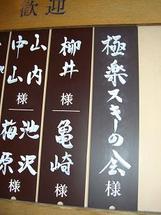 歓迎
極楽スキーの会 様
柳井 様
亀崎 様
山内
中山 様
池沢
梅原 様